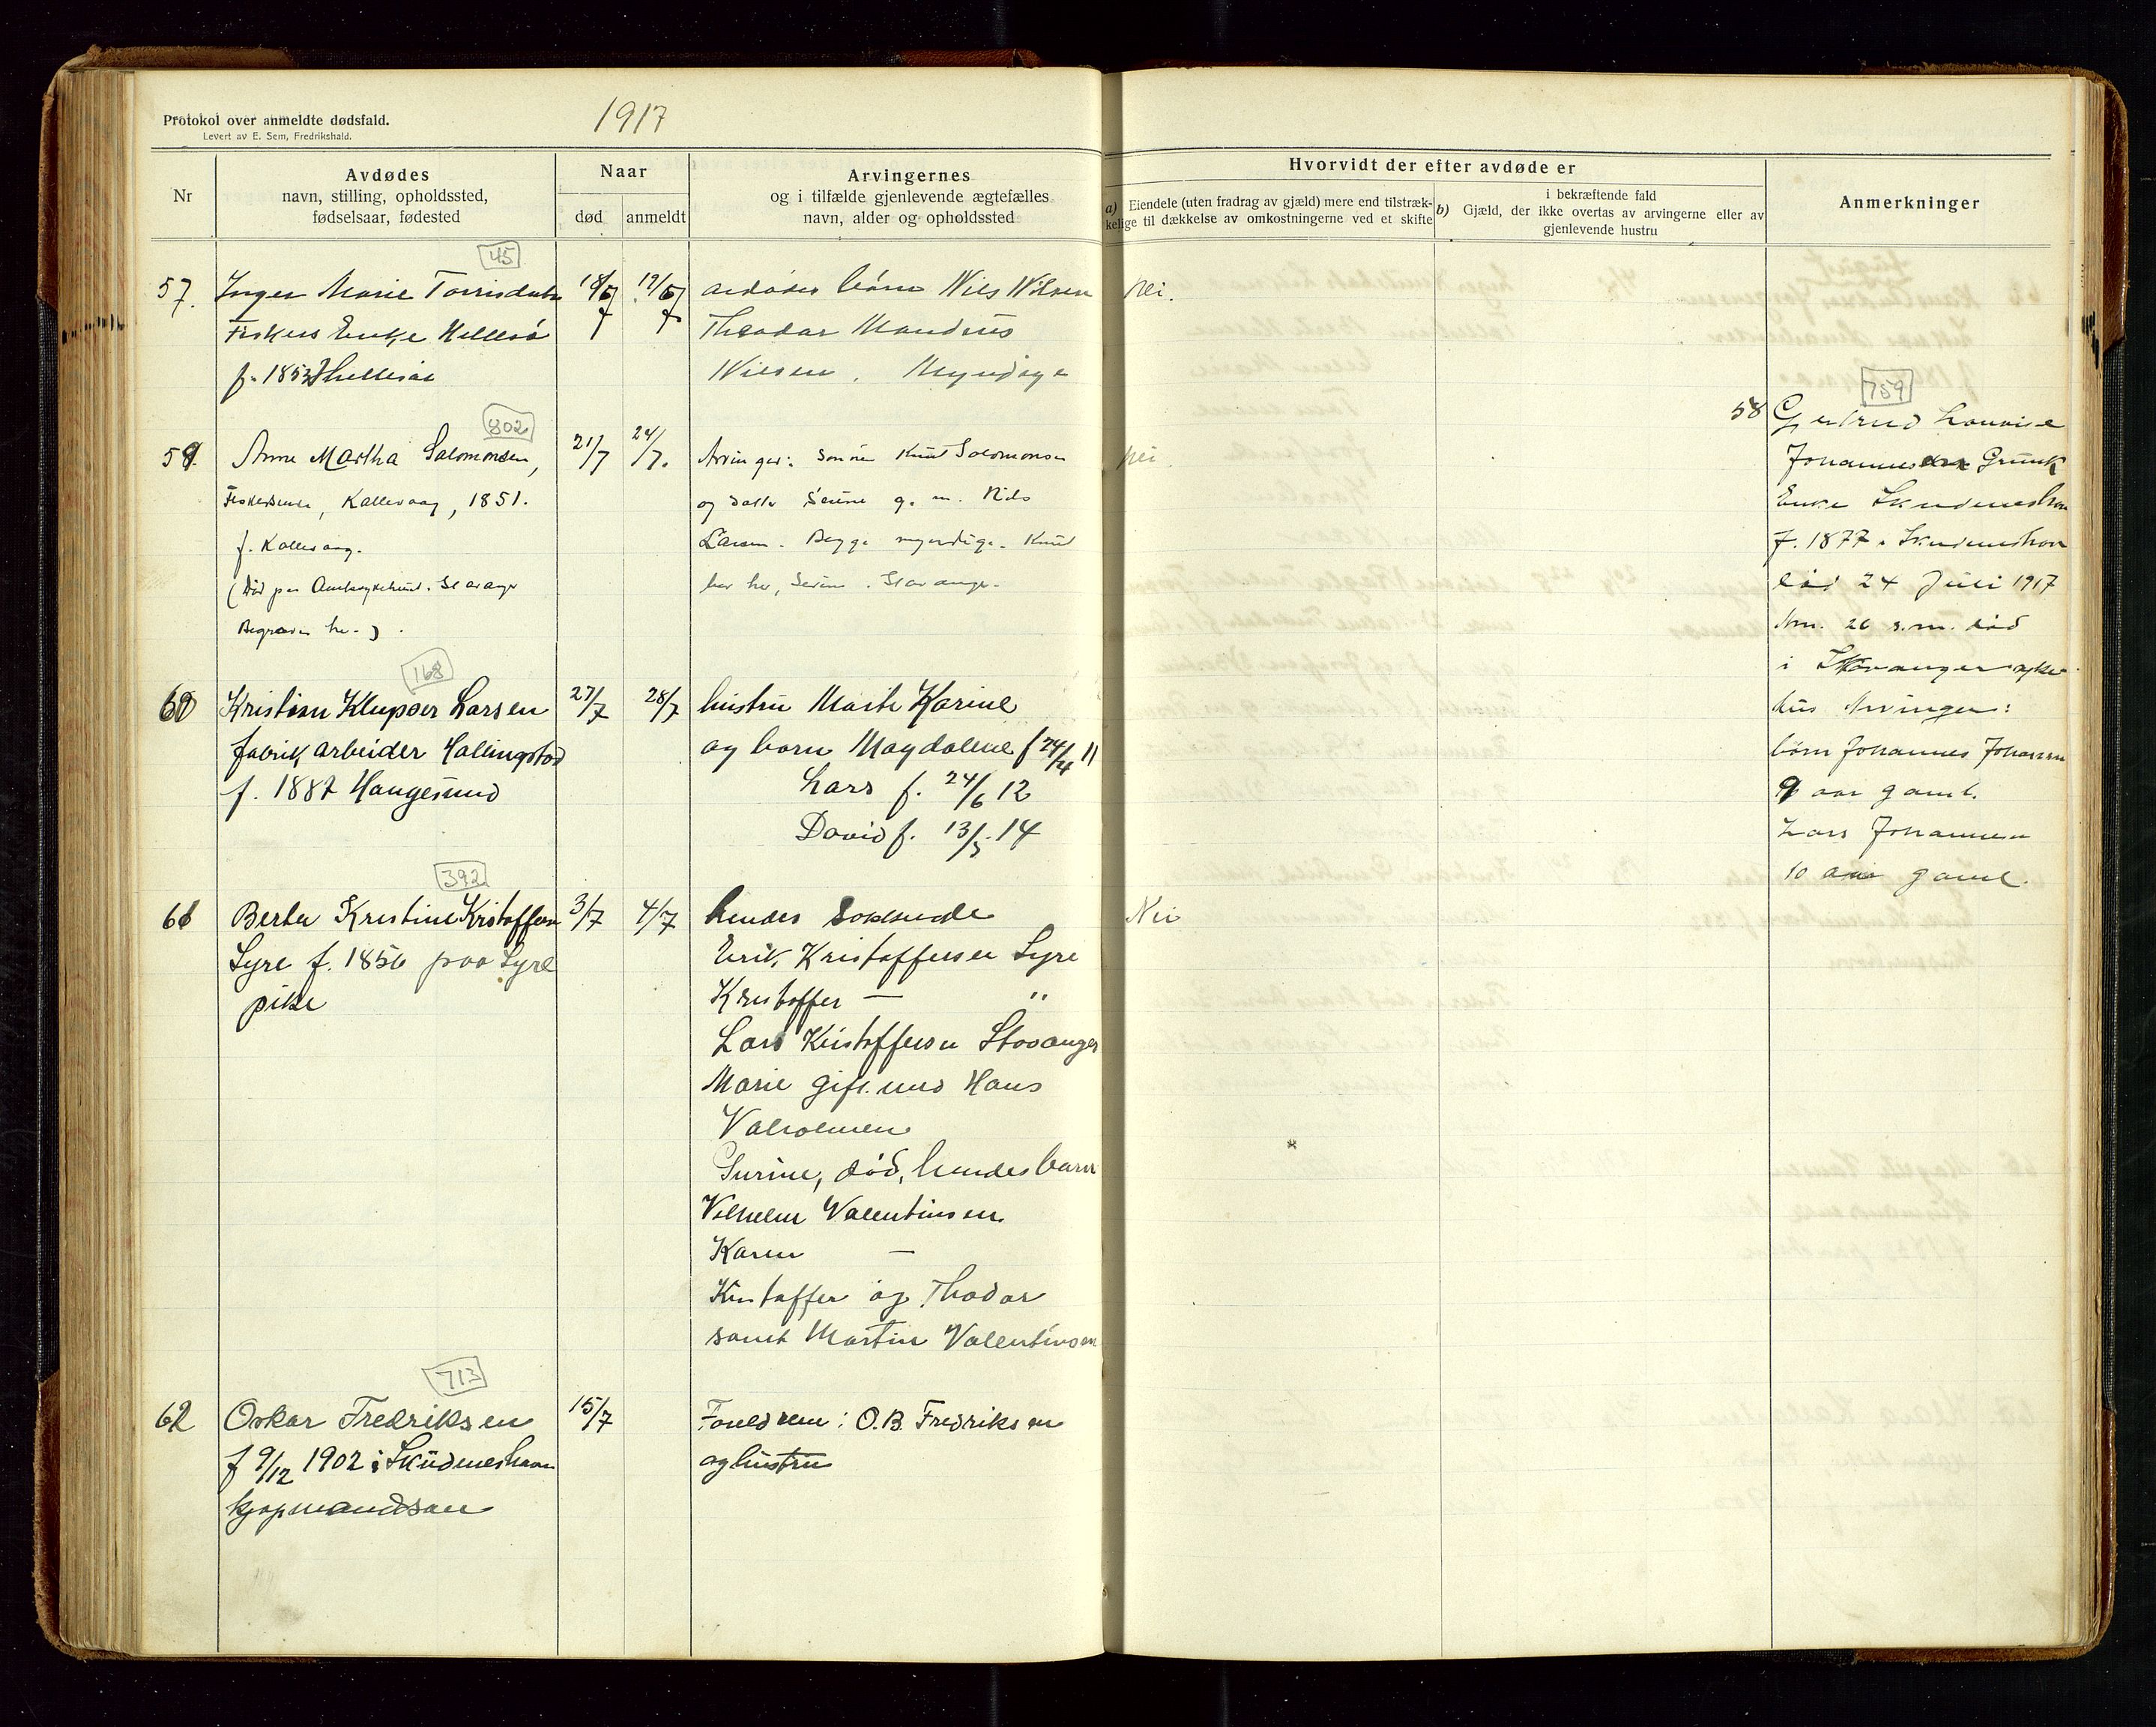 Protokol over anmeldte dødsfald.
Levert av E. Sem, Fredrikshald.
1917
Nr
Avdødes
navn, stilling, opholdssted,
fødselsaar, fødested
Naar
død
anmeldt
Arvingernes
og i tilfælde gjenlevende ægtefælles
navn, alder og opholdssted
Hvorvidt der efter avdøde er
a) Eiendele (uten fradrag av gjæld) mere end tilstræk-
kelige til dækkelse av omkostningerne ved et skifte
b) i bekræftende fald
Gjæld, der ikke overtas av arvingerne eller av
gjenlevende hustru
Anmerkninger
45
57. Inger Marie Torrisdatter 18/7 19/7 avdødes børn Nils Nilsen Nei.
Fiskers Enke Hillesö Theodor Mandrus
f. 1853 Nilsen. Myndige
802
59. Anne Martha Salomonsen, 21/7 24/7. Arvinger: Sønnen Knut Salomonsen Nei.
Kallevaag, 1851. og datter Serine g. m. Nils
f. Kallevaag. Larsen. Begge myndige. Knut
(Død paa Amtssykehuset. Stavanger bor her, Serine i Stavanger.
Begraves her.)
168
60 Kristian Klupser Larsen 27/7 28/7 hustru Marte Karine
fabrikarbeider Hallingstad og barn Magdalene f 24/4 11
f. 1887 Haugesund Lars f. 24/6 12
David f. 13/3. 14
392
61 Berta Kristine Kristoffersen 3/7 4/7 hendes søskende Nei
Syre f. 1856 paa Syre Erik Kristoffersen Syre
pike Kristoffer — "
Lars Kristoffersen Stavanger
Marie gift med Hans
Valholmen
Surine, død, hendes barn
Vilhelm Valentinsen
Karen —
Kristoffer og Thodor
samt Martin Valentinsen
713
62 Oskar Fredriksen 15/7 Forældrene: O.B. Fredriksen
f 9/12 1902 i Skudneshavn og hustru
kjøpmandsøn
759
58 Gjertrud Lovise
Johannesen Grunk
Enke Skudneshavn
f. 1877 i Skudneshavn
død 24 Juli 1917
Anm. 26 s.m. død
i Stavanger syke
hus Arvinger:
børn Johannes Johannesen
9 aar gaml.
Lars Johannesen
10 aar gaml.